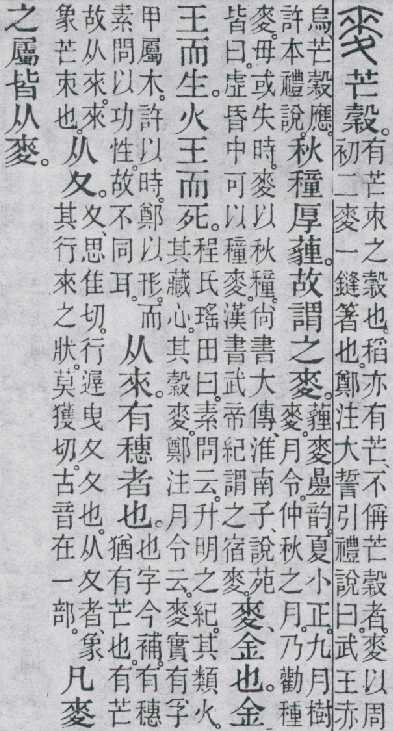 麥芒穀。有芒朿之穀也。稻亦有芒、不偁芒穀者、麥以周初二麥一鏠箸也。鄭注大誓引禮說曰。武王赤
烏芒穀應。許本禮說。秋穜厚薶。故謂之麥。薶麥疊韵。夏小正。九月樹麥。月令。仲秋之月。乃勸種
麥。毋或失時。麥以秋穜。尙書大傳、淮南子、說苑皆曰。虛昏中可以穜麥。漢書武帝紀謂之宿麥。麥、金也。金
王而生。火王而死。程氏瑤田曰。素問云。升明之紀。其類火。其藏心。其穀麥。鄭注月令云。麥實有孚
甲。屬木。許以時。鄭以形。而素問以功性。故不同耳。从來。有穗者也。也字今補。有穗猶有芒也。有芒
故从來。來象芒朿也。从夊。夊、思隹切。行遟曳夊夊也。从夊者、象其行來之狀。莫獲切。古音在一部。凡麥
之屬皆从麥。